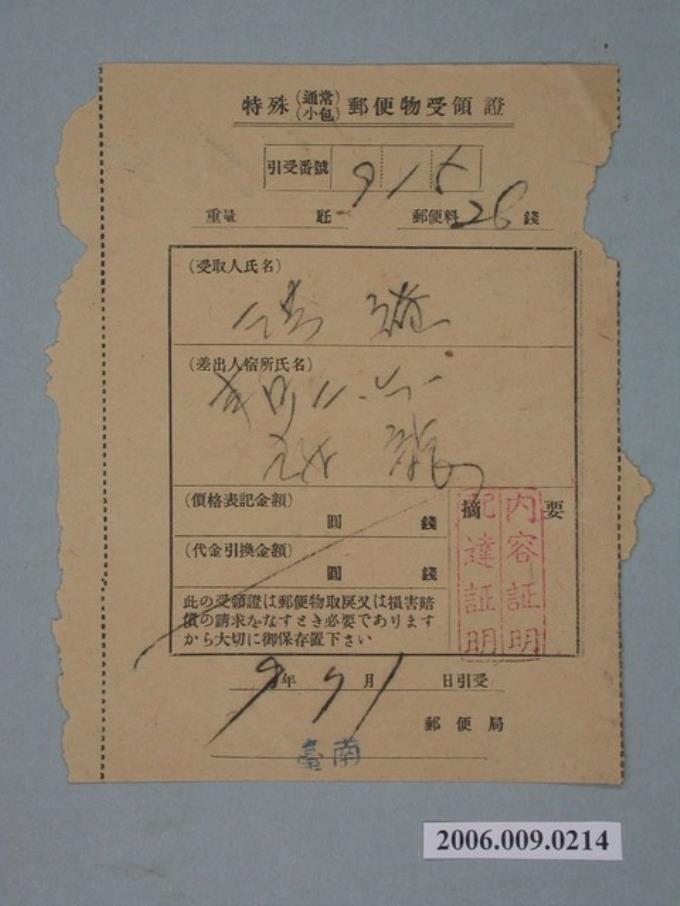 特殊(通常小包)郵便物受領證
引受番號 915
重量 瓩 郵便料 28 錢
(受取人氏名)
(差出人宿所氏名)
(價格表記金額)
圓 錢
(代金引換金額)
圓 錢
摘要
内容証明
配達証明
此の受領證は郵便物取戻又は損害賠
償の請求をなすとき必要であります
から大切に御保存置下さい
年 月 日引受
郵便局
臺南
2006.009.0214